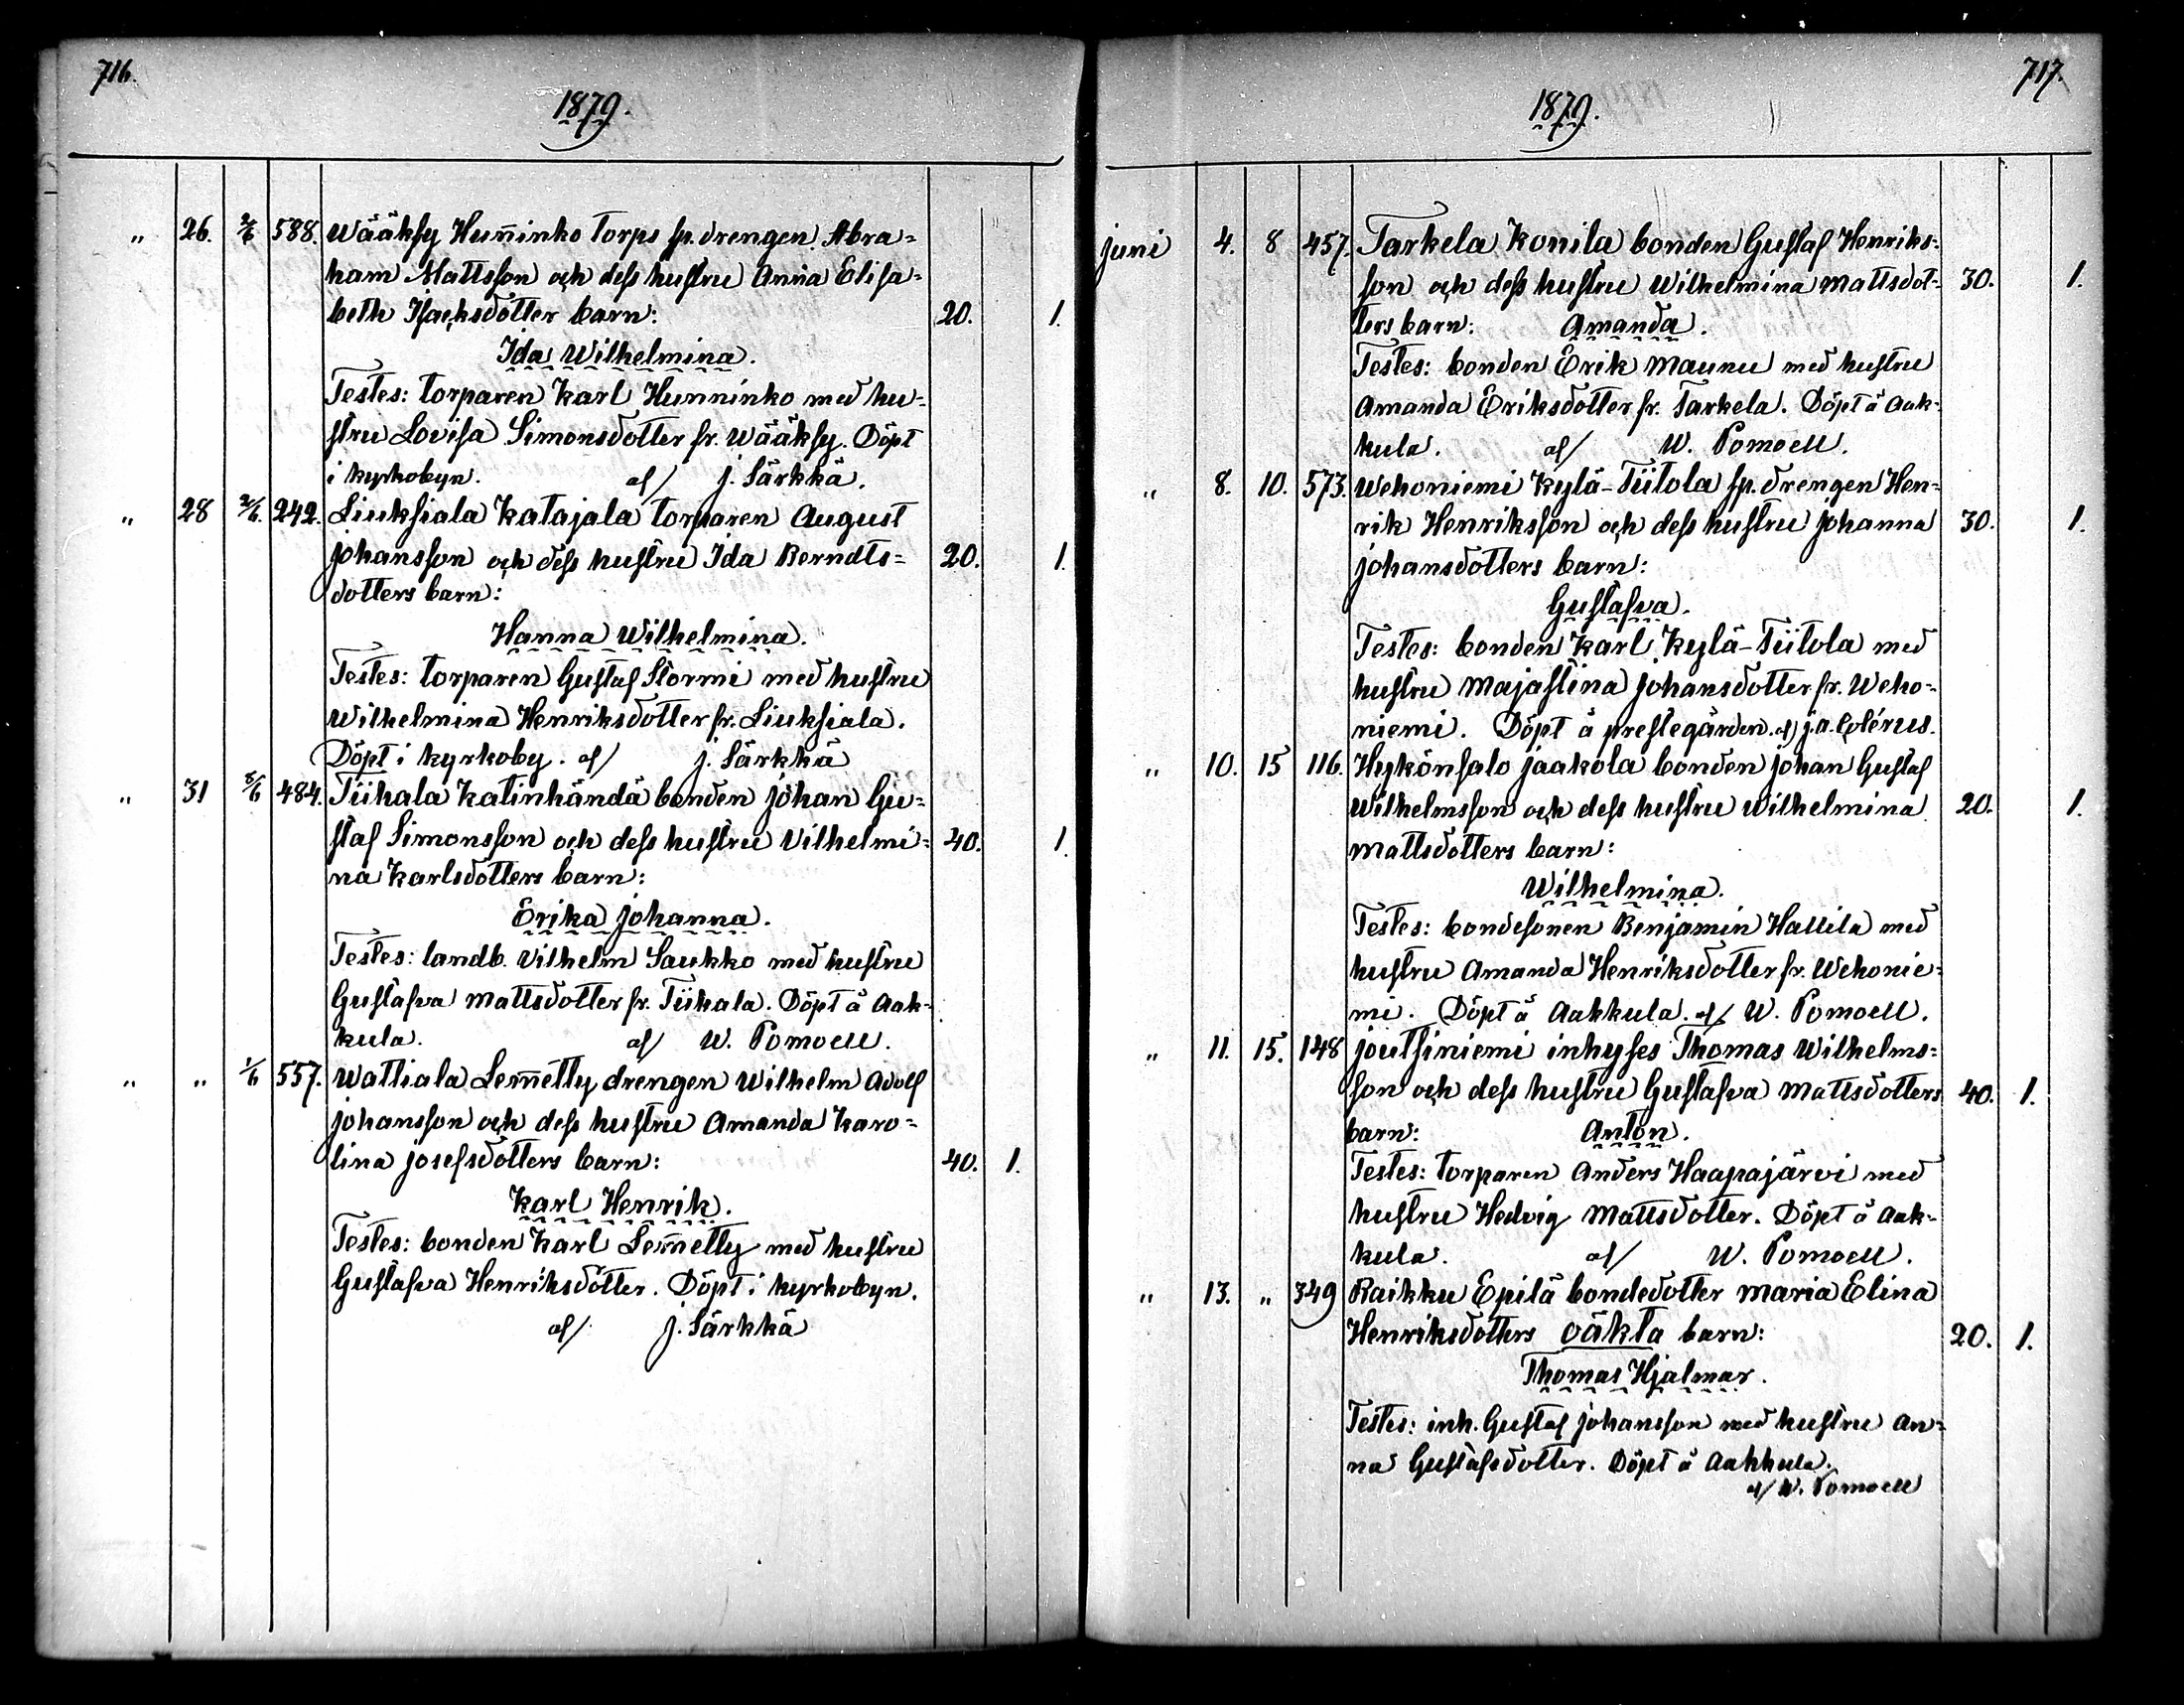 716.
1879.
„ 26. 2/6 588. Wääksy Hum̄inko torps sp. drengen Abra=
ham Mattsson och dess hustru Anna Elisa=
beth Isacksdotter barn: 20. 1.
Ida Wilhelmina.
Testes: torparen Karl Humninko med hu=
stru Lovisa Simonsdotter fr. Wääksy. Döpt
i kyrkobyn. af/ J. Särkkä.
„ 28 2/6. 242. Liuksiala Katajala torparen August
Johansson och dess hustru Ida Berndts= 20. 1.
dotters barn:
Hanna Wilhelmina.
Testes: torparen Gustaf Stormi med hustru
Wilhelmina Henriksdotter fr. Liuksiala.
Döpt i kyrkoby. af/ J. Särkkä
„ 31 8/6 484. Tiihala Katinhändä bonden Johan Gu=
staf Simonsson och dess hustru Vilhelmi= 40. 1.
na Karlsdotters barn:
Erika Johanna.
Testes: landb. Vilhelm Saukko med hustru
Gustafva Mattsdotter fr. Tiihala. Döpt å Aak=
kula. af/ W. Pomoell.
„ „ 1/6 557. Wattiala Lem̄etty drengen Wilhelm Adolf
Johansson och dess hustru Amanda Karo=
lina Josefsdotters barn: 40. 1.
Karl Henrik.
Testes: bonden Karl Lem̄etty med hustru
Gustafva Henriksdotter. Döpt i kyrkobyn.
af/ J. Särkkä
717.
1879.
Juni 4. 8 457. Tarkela Konila bonden Gustaf Henriks=
son och dess hustru Wilhelmina Mattsdot= 30. 1.
ters barn: Amanda.
Testes: bonden Erik Maunu med hustru
Amanda Eriksdotter fr. Tarkela. Döpt å Aak=
kula. af/ W. Pomoell.
„ 8. 10. 573. Wehoniemi Kylä-Tiitola sp. drengen Hen=
rik Henriksson och dess hustru Johanna 30. 1.
Johansdotters barn:
Gustafva.
Testes: bonden Karl Kylä-Tiitola med
hustru Majastina Johansdotter fr. Weho=
niemi. Döpt å prestegården. af/ J. A. Colérus.
„ 10. 15 116. Hykönsalo Jaakola bonden Johan Gustaf
Wilhelmsson och dess hustru Wilhelmina 20. 1.
Mattsdotters barn:
Wilhelmina.
Testes: bondesonen Benjamin Hallila med
hustru Amanda Henriksdotter fr. Wehonie=
mi. Döpt å Aakkula. af/ W. Pomoell.
„ 11. 15. 148 Joutsiniemi inhyses Thomas Wilhelms=
son och dess hustru Gustafva Mattsdotters 40. 1.
barn: Anton.
Testes: torparen Anders Haapajärvi med
hustru Hedvig Mattsdotter. Döpt å Aak=
kula. af/ W. Pomoell.
„ 13. „ 349 Raikku Epilä bondedotter Maria Elina
Henriksdotters oäkta barn: 20. 1.
Thomas Hjalmar.
Testes: inh. Gustaf Johansson med hustru An=
na Gustafsdotter. Döpt å Aakkula.
af/ W. Pomoell